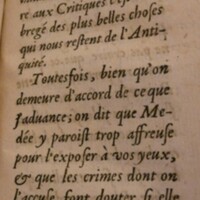 re aux Critiques
bregé des plus belles choses
qui nous restent de l'Anti-
quité.
Toutesfois, bien qu'on
demeure d'accord de ce que
j'aduance; on dit que Me-
dée y paroist trop affreuse
pour l'exposer à vos yeux,
& que les crimes dont on
l'accuse font douter si elle